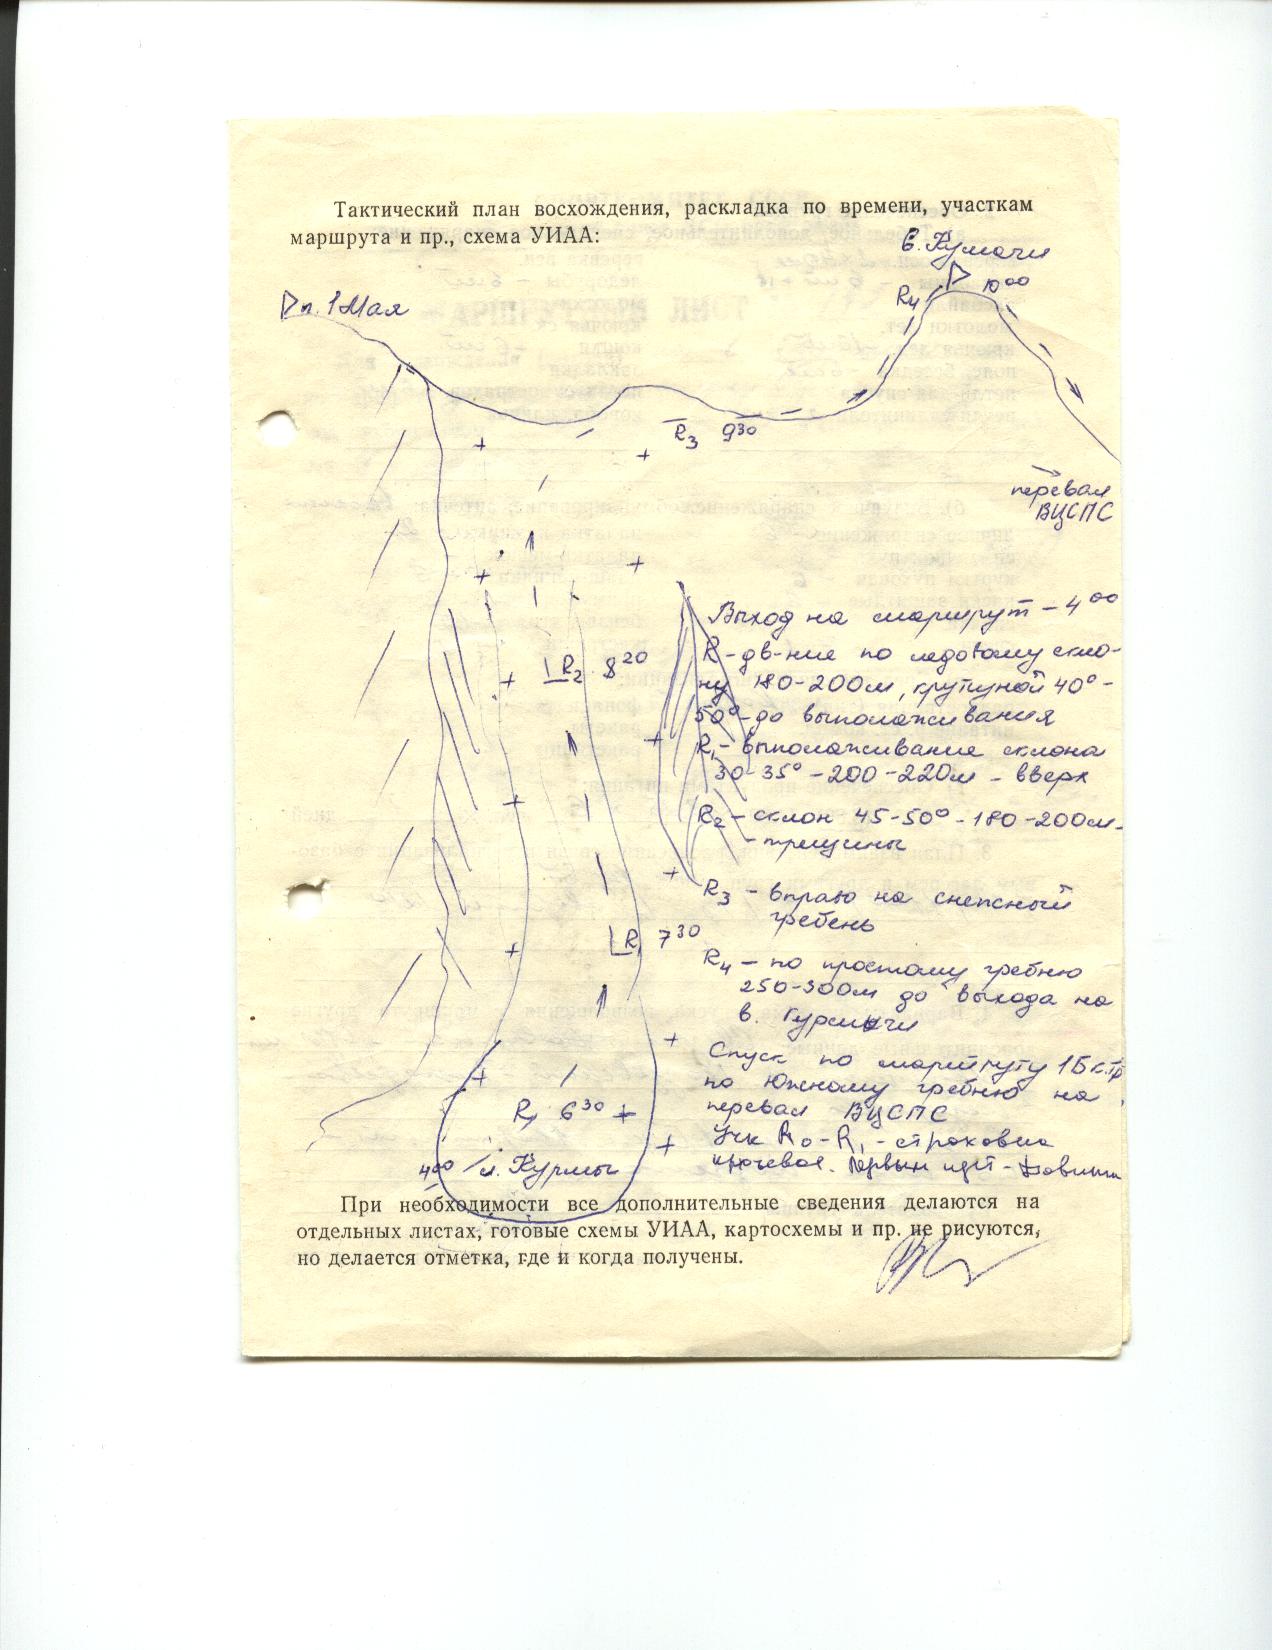 Тактический план восхождения, раскладка по времени, участкам
маршрута и пр., схема УИАА:
в. Кумачи
п. 1 Мая
R4 10 00
R3 9 30
перевал
ВЦСПС
Выход на маршрут – 4 00
R – дв-ние по ледовому скло-
ну 180-200м, крутизной 40° -
50° - до выполаживания
R2 8 20
R1 – выполаживание склона
30-35° - 200-220м – вверх
R2 – склон 45-50° - 180-200м -
- трещины
R3 – вправо на снежный
гребень
R1 7 30
R4 – по простому гребню
250-300м до выхода на
в. Гурмачи
Спуск по маршруту 1Б к.тр
по Южному гребню на
перевал ВЦСПС
R1 6 30
Уч-к R0 – R1 – страховка
крючевая. Первым идёт -
4 00 л. Курмы
При необходимости все дополнительные сведения делаются на
отдельных листах, готовые схемы УИАА, картосхемы и пр. не рисуются,
но делается отметка, где и когда получены.